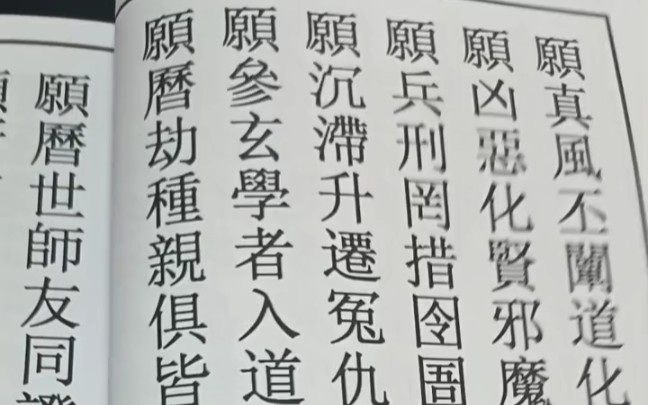 願真風丕闡道化
願凶惡化賢邪魔
願兵刑罔措囹圄
願沉滯升遷冤仇
願參玄學者入道
願曆劫種親俱皆
願曆世師友同證
願